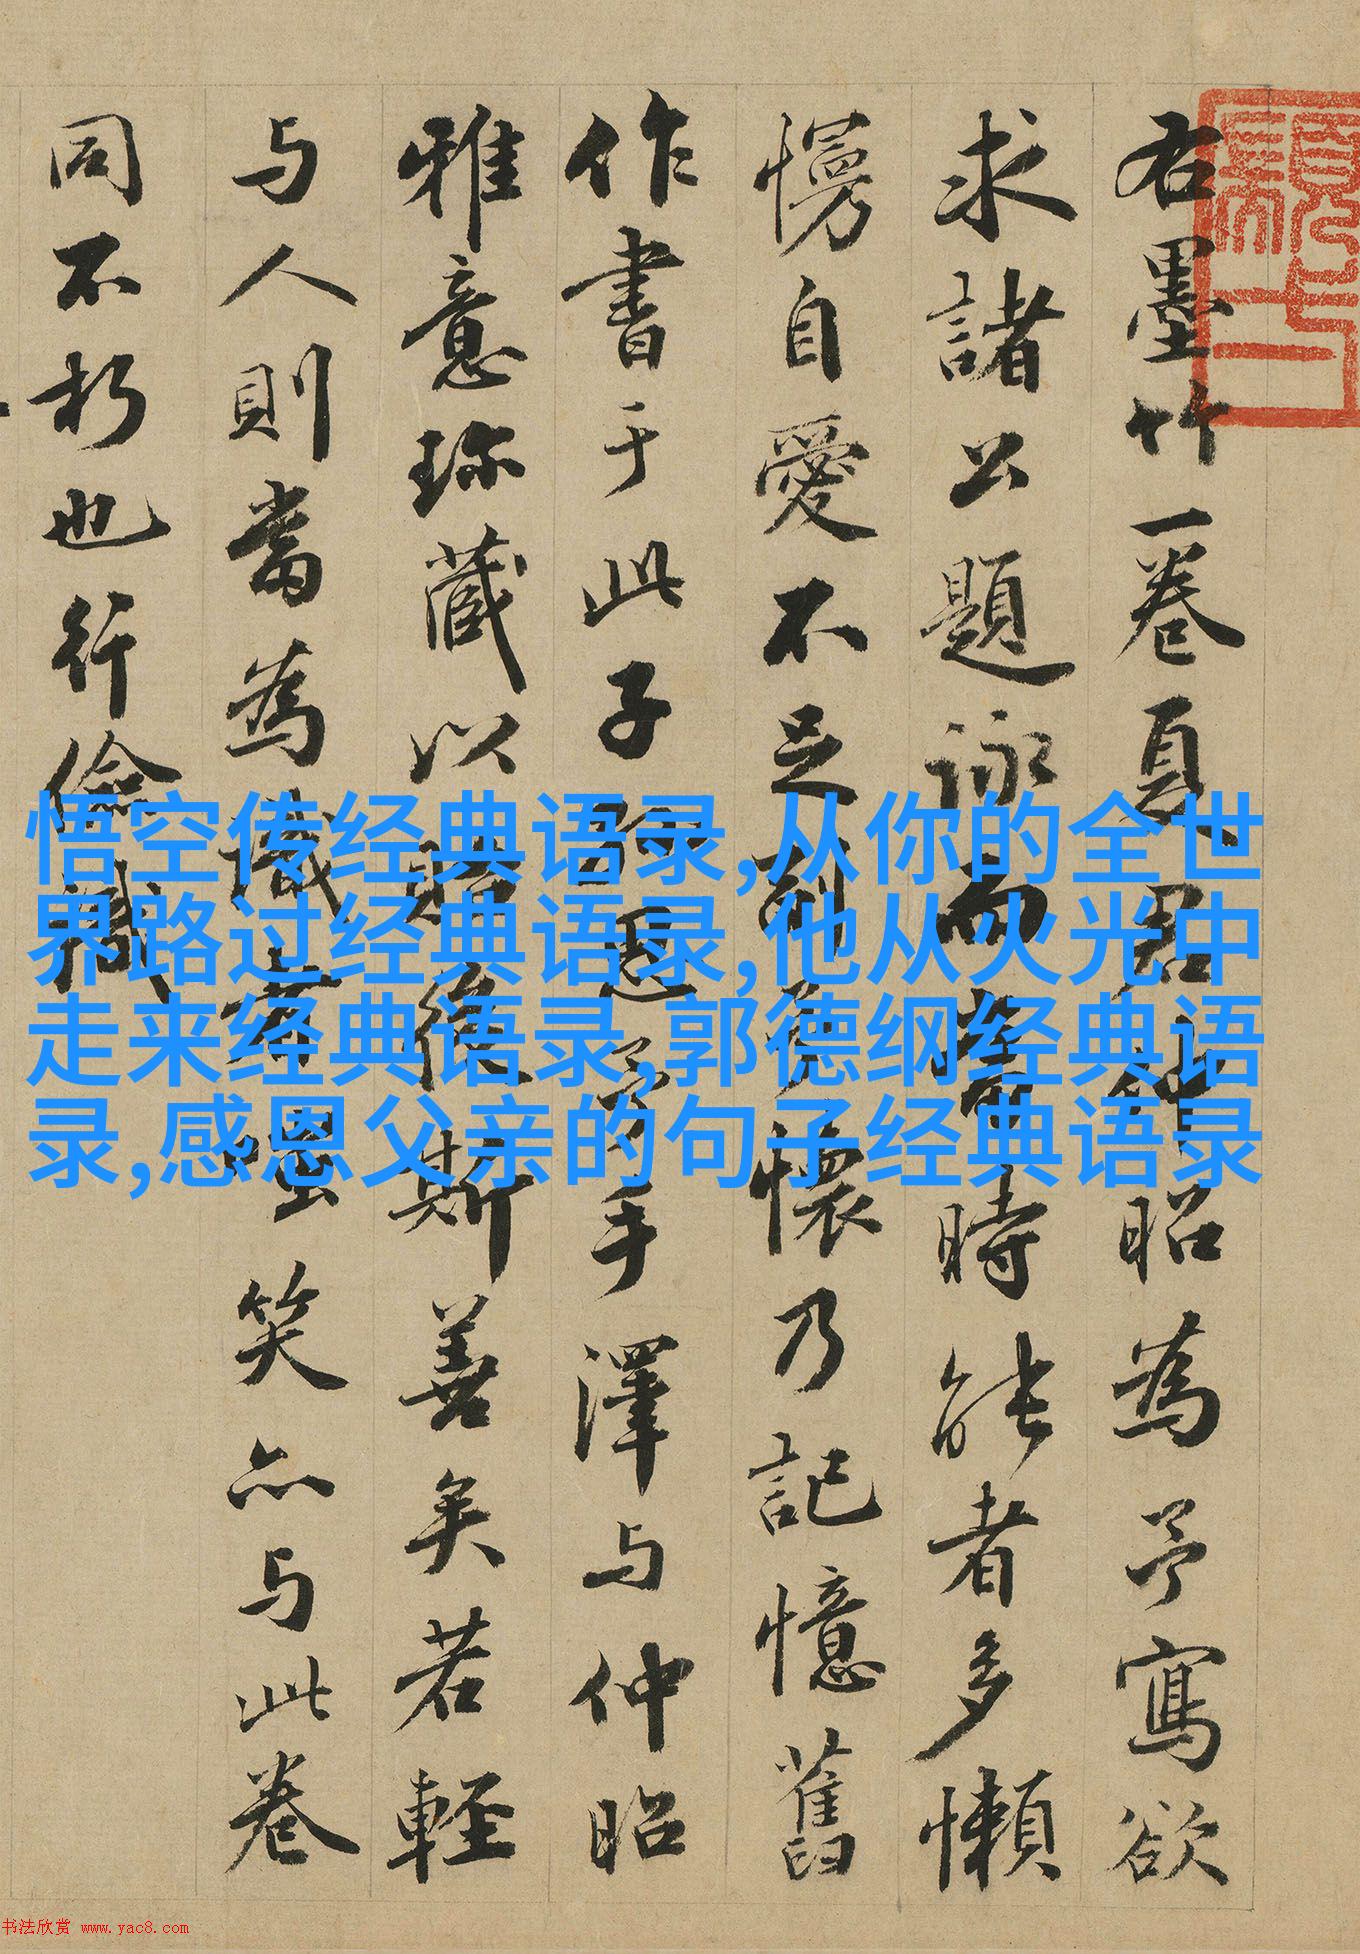 右墨竹一卷夏君仲昭為予寫欲
求諸公題詠而當時能者多懶
慢自愛不足刻予懷乃記憶舊
作書于此子孫思予手澤与仲昭
雅意珍藏以贻後斯善矣若輕
与人則當為識者嗤笑亦与此卷
同不朽也行儉識
悟空传经典语录,从你的全世
界路过经典语录,他从火光中
走来经典语录,郭德纲经典语
录,感恩父亲的句子经典语录
书法欣赏 www.yac8.com